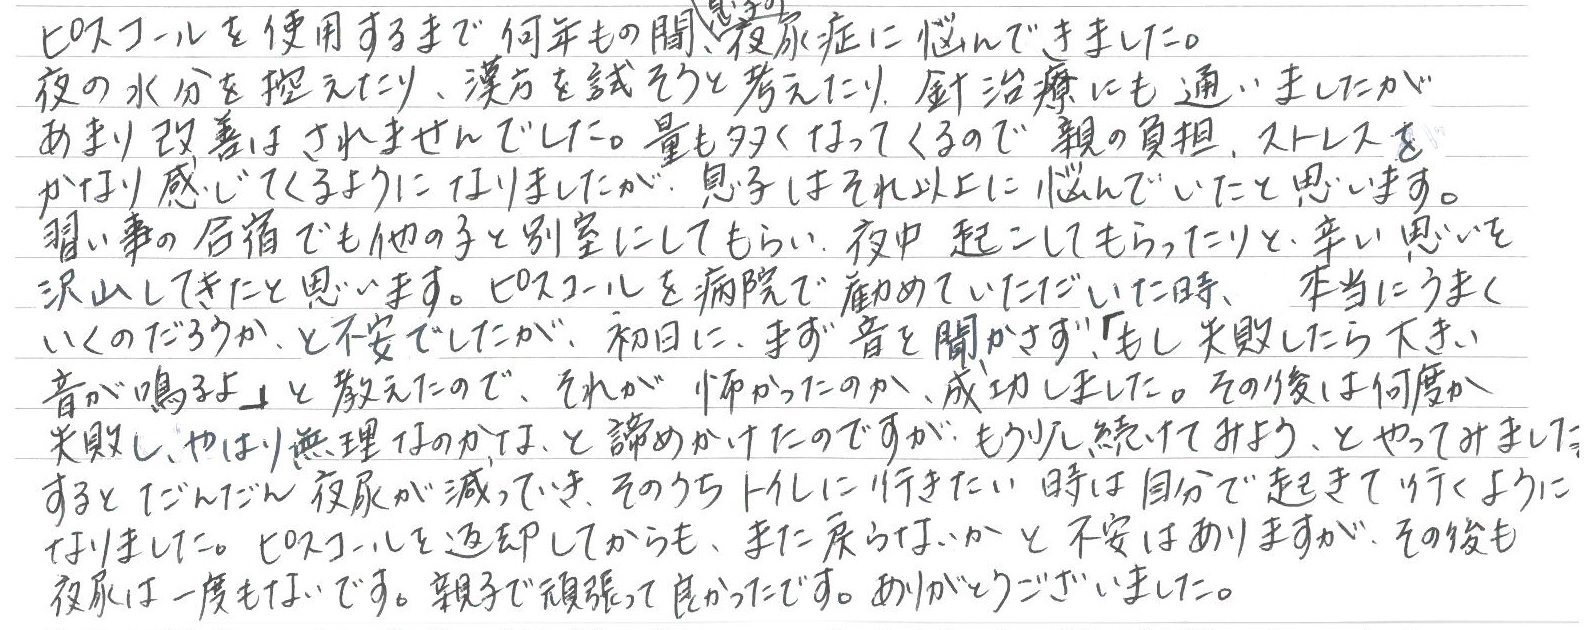 ピスコールを使用するまで何年もの間、息子の夜尿症に悩んできました。
夜の水分を控えたり、漢方を試そうと考えたり、針治療にも通いましたが
あまり改善はされませんでした。量も多くなってくるので親の負担、ストレスを
かなり感じてくるようになりましたが、息子はそれ以上に悩んでいたと思います。
習い事の合宿でも他の子と別室にしてもらい、夜中起こしてもらったりと、辛い思いを
沢山してきたと思います。ピスコールを病院で勧めていただいた時、本当にうまく
いくのだろうか、と不安でしたが、初日に、まず音を聞かさず、「もし失敗したら大きい
音が鳴るよ」と教えたので、それが怖かったのか、成功しました。その後は何度か
失敗し、やはり無理なのかな、と諦めかけたのですが、もう少し続けてみよう、とやってみました
するとだんだん夜尿が減っていき、そのうちトイレに行きたい時は自分で起きて行くように
なりました。ピスコールを返却してからも、また戻らないかと不安はありますが、その後も
夜尿は一度もないです。親子で頑張って良かったです。ありがとうございました。